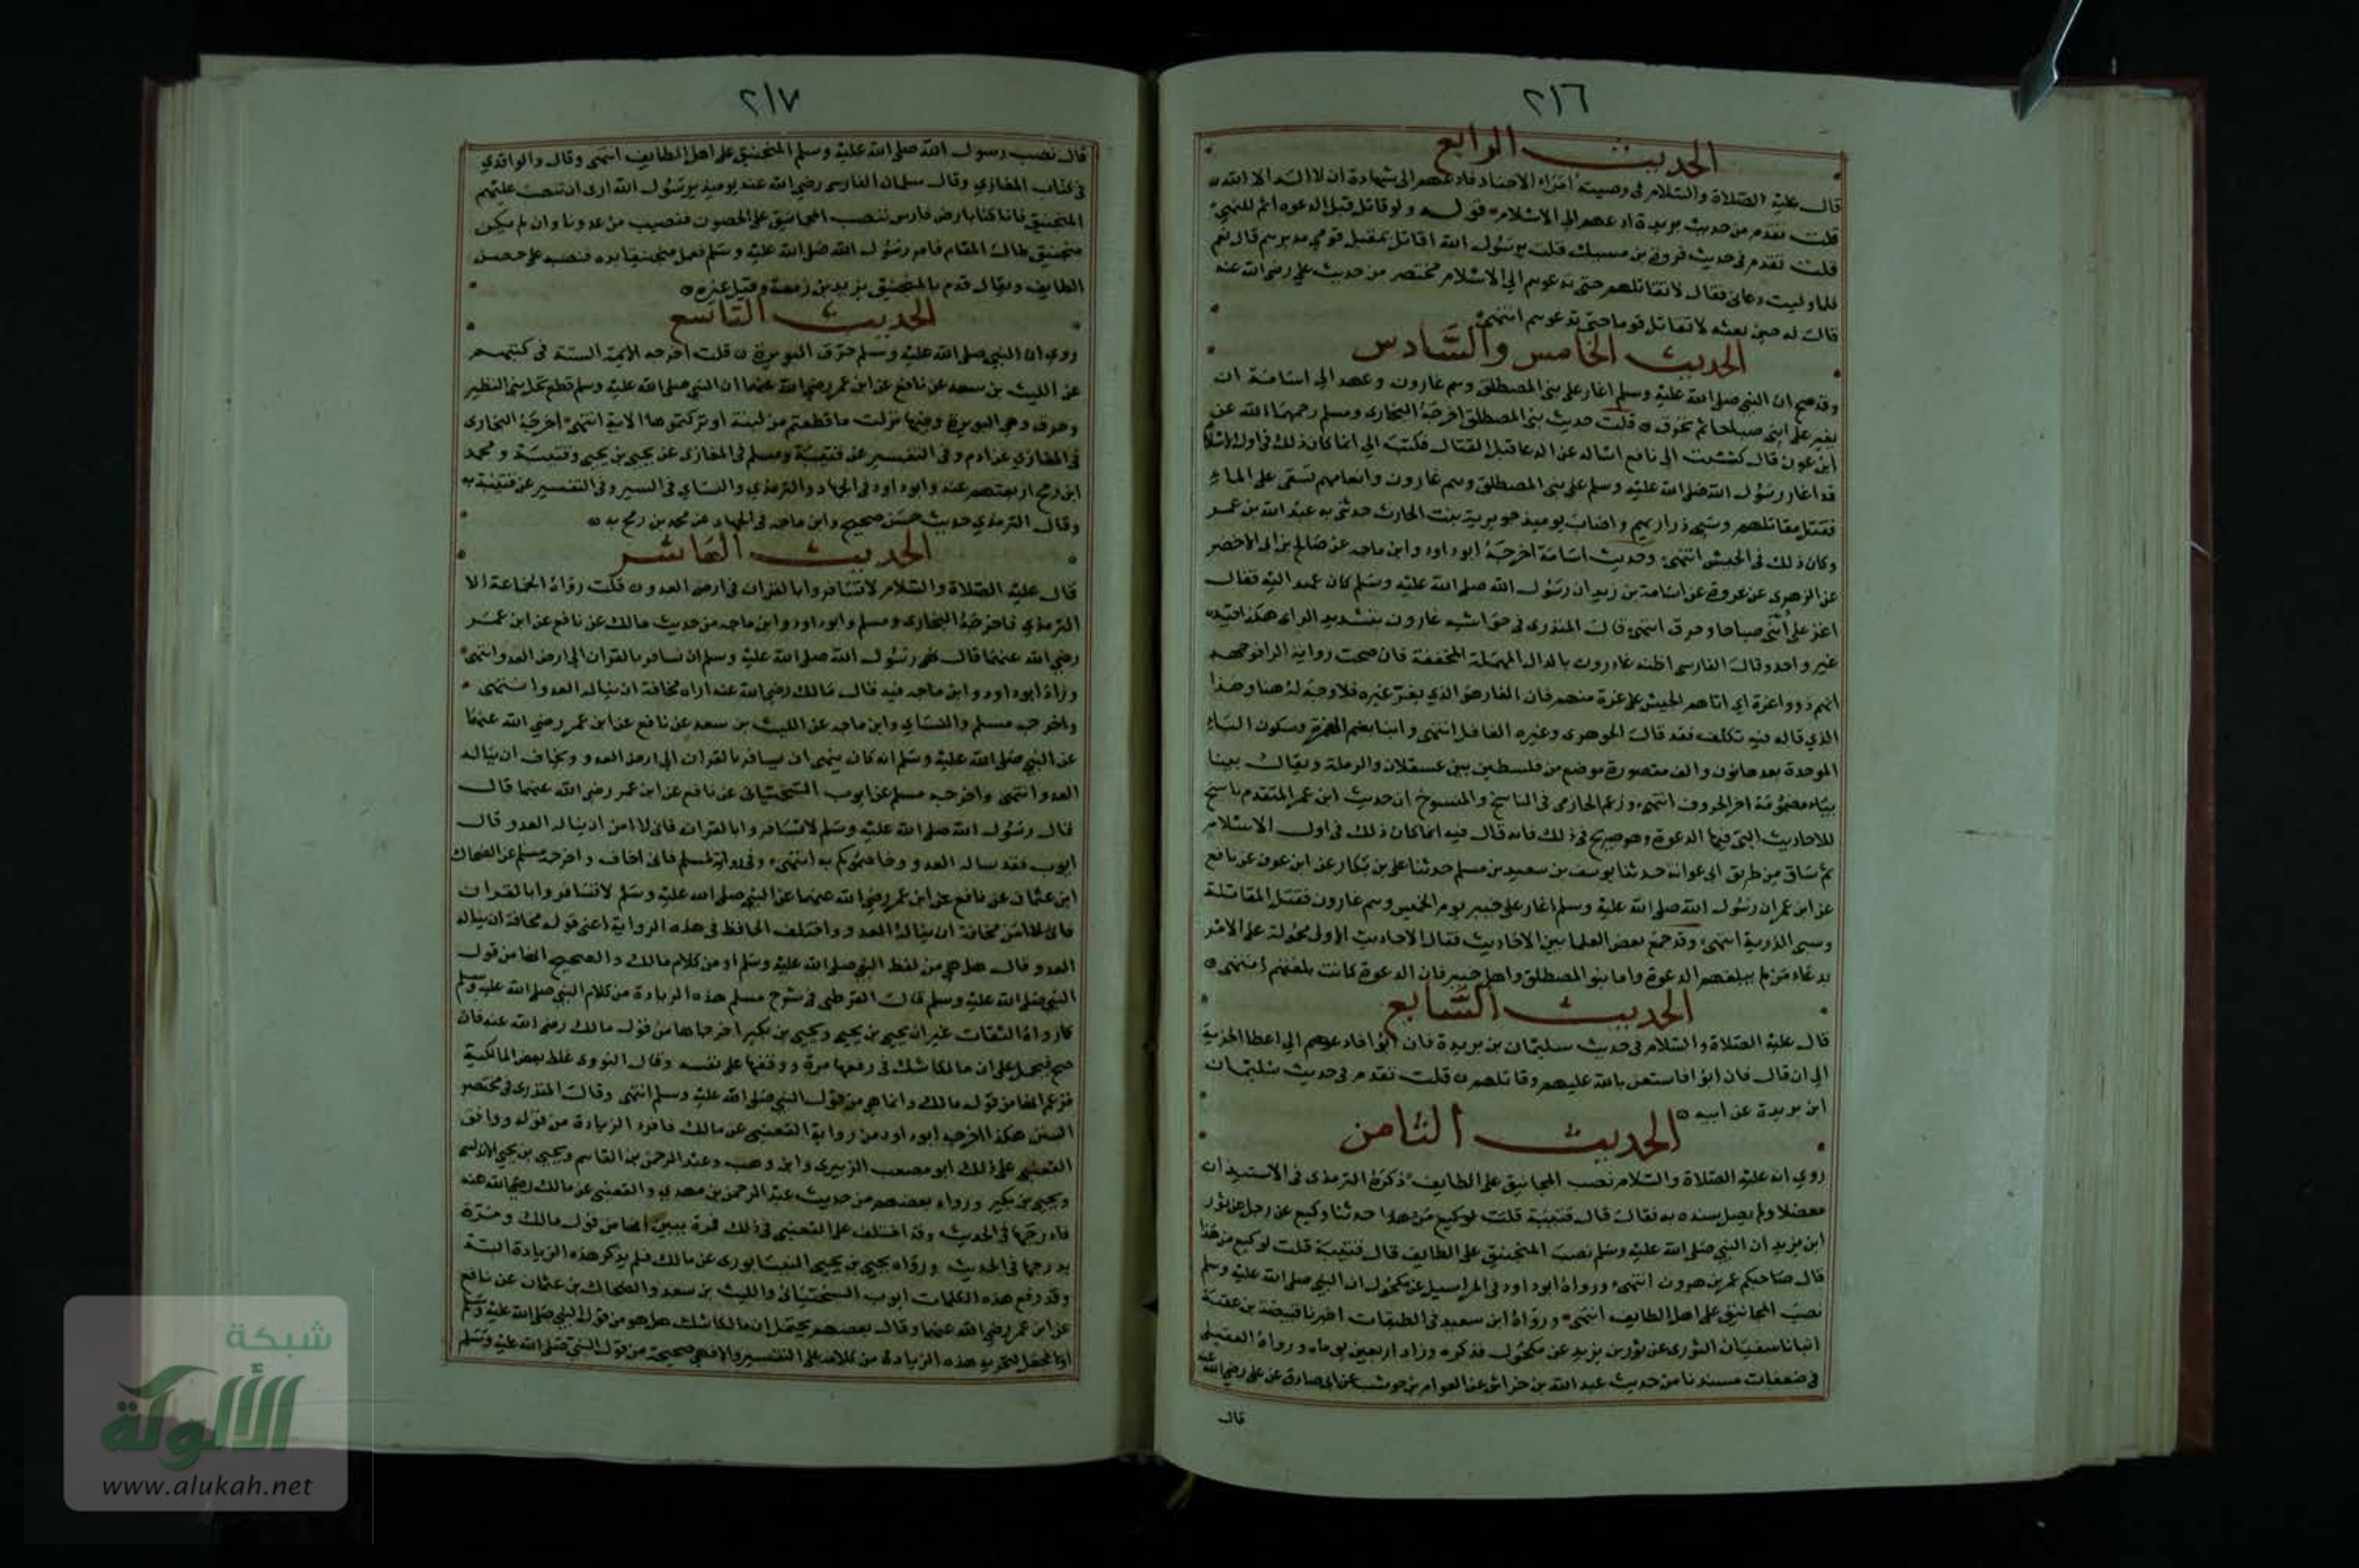 ٢١٦
الحديث الرابع
قال عليه الصلاة والسلام في وصيته امراء الاجناد فادعهم الى شهادة ان لا اله الا الله
قلت تقدم من حديث بريدة ادعهم الى الاسلام قوله ولو قاتل قبل الدعوه اثم للنهي
قلت تقدم في حديث فروة بن مسيك قلت يرسول الله اقاتل بمقبل قومي مدبرهم قال نعم
فلما وليت دعاني فقال لا تقاتلهم حتى تدعوهم الي الاسلام مختصر من حديث علي رضي الله عنه
قال له حين بعثه لا تقاتل قوما حتى تدعوهم انتهى
الحديث الخامس والسادس
وقد صح ان النبي صلى الله عليه وسلم اغار على بني المصطلق وهم غارون وعهد الى اسامة ان
يغير على ابنى صباحا ثم يحرق قلت حديث بني المصطلق اخرجه البخاري ومسلم رحمهما الله عن
ابن عون قال كتبت الى نافع اساله عن الدعا قبل القتال فكتب الي انما كان ذلك في اول الاسلام
قد اغار رسول الله صلى الله عليه وسلم على بني المصطلق وهم غارون وانعامهم تسقى على الماء
فقتل مقاتلهم وسبى ذراريهم واصاب يوميذ جويرية بنت الحارث حدثني به عبد الله بن عمر
وكان ذلك في الجيش انتهى وحديث اسامة اخرجه ابو داود وابن ماجه عن صالح بن ابي الاخضر
عن الزهري عن عروة عن اسامة بن زيد ان رسول الله صلى الله عليه وسلم كان عهد اليه فقال
اغر على ابنى صباحا وحرق انتهى قال المنذري في حواشيه غارون بتشديد الراء هكذا قيده
غير واحد وقال الفارسي اظنه غادرون بالدال المهملة المخففة فان صحت رواية الراء فوجهه
انهم ذووا غرة اي اتاهم الجيش على غرة منهم فان الغار هو الذي يغر غيره فلا وجه له هنا وهذا
الذي قاله فيه تكلف فقد قال الجوهري وغيره الغافل انتهى وابنا بضم الهمزة وسكون الباء
الموحدة بعدها نون والف مقصورة موضع من فلسطين بين عسقلان والرملة ويقال يبنا
بياء مضمومة اخر الحروف انتهى وزعم الحازمي في الناسخ والمنسوخ ان حديث ابن عمر المتقدم ناسخ
للاحاديث التي فيها الدعوة وهو صريح في ذلك فانه قال فيه انما كان ذلك في اول الاسلام
ثم ساق من طريق ابي عوانة حدثنا يوسف بن سعيد بن مسلم حدثنا علي بن بكار عن ابن عون عن نافع
عن ابن عمر ان رسول الله صلى الله عليه وسلم اغار على خيبر يوم الخميس وهم غارون فقتل المقاتلة
وسبى الذرية انتهى وقد جمع بعض العلما بين الاحاديث فقال الاحاديث الاولى محمولة على الامر
بدعاء من لم يبلغهم الدعوة واما بنو المصطلق واهل خيبر فان الدعوة كانت بلغتهم انتهى
الحديث السابع
قال عليه الصلاة والسلام في حديث سليمان بن بريدة فان ابوا فادعهم الي اعطا الجزية
الى ان قال فان ابوا فاستعن بالله عليهم وقاتلهم قلت تقدم في حديث سليمان
ابن بريدة عن ابيه
الحديث الثامن
روي انه عليه الصلاة والسلام نصب المجانيق على الطايف ذكره الترمذي في الاستيذان
معضلا ولم يصل سنده به فقال قال قتيبة قلت لوكيع من هذا حدثنا وكيع عن رجل عن ثور
ابن يزيد ان النبي صلى الله عليه وسلم نصب المنجنيق على الطايف قال قتيبة قلت لوكيع من هذا
قال صاحبكم عمر بن هرون انتهى ورواه ابو داود في المراسيل عن مكحول ان النبي صلى الله عليه وسلم
نصب المجانيق على اهل الطايف انتهى ورواه ابن سعيد في الطبقات اخبرنا قبيصة بن عقبة
انبانا سفيان الثوري عن ثور بن يزيد عن مكحول فذكره وزاد اربعين يوماه ورواه العقيلي
في ضعفات مسندنا من حديث عبد الله بن خراش عن العوام بن حوشب عن ابي صادق عن علي رضي الله عنه
قال
٢١٧
قال نصب رسول الله صلى الله عليه وسلم المنجنيق على اهل الطايف انتهى وقال والواقدي
في كتاب المغازي وقال سلمان الفارسي رضي الله عنه يوميذ يرسول الله ارى ان تنصب عليهم
المنجنيق فانا كنا بارض فارس ننصب المجانيق على الحصون فنصيب من عدونا وان لم يكن
منجنيق طال المقام فامر رسول الله صلى الله عليه وسلم فعمل منجنيقا بيده فنصبه على حصن
الطايف ويقال قدم بالمنجنيق يزيد بن زمعة وقيل غيره
الحديث التاسع
روي ان النبي صلى الله عليه وسلم حرق البويرة قلت اخرجه الايمة الستة في كتبهم
عن الليث بن سعد عن نافع عن ابن عمر رضي الله عنهما ان النبي صلى الله عليه وسلم قطع نخل بني النظير
وحرق وهي البويرة وفيها نزلت ما قطعتم من لينة او تركتموها الاية انتهى اخرجه البخاري
في المغازي عن ادم وفي التفسير عن قتيبة ومسلم في المغازي عن يحيى بن يحيى وقتيبة ومحمد
ابن رمح اربعتهم عنه وابو داود في الجهاد والترمذي والنساي في السير وفي التفسير عن قتيبة به
وقال الترمذي حديث حسن صحيح وابن ماجه في الجهاد عن محمد بن رمح به
الحديث العاشر
قال عليه الصلاة والسلام لا تسافروا بالقران في ارض العدو قلت رواه الجماعة الا
الترمذي فاخرجه البخاري ومسلم وابو داود وابن ماجه من حديث مالك عن نافع عن ابن عمر
رضي الله عنهما قال نهى رسول الله صلى الله عليه وسلم ان نسافر بالقران الى ارض العدو انتهى
وزاد ابو داود وابن ماجه فيه قال مالك رضي الله عنه اراه مخافة ان يناله العدو انتهى
واخرجه مسلم والنساي وابن ماجه عن الليث بن سعد عن نافع عن ابن عمر رضي الله عنهما
عن النبي صلى الله عليه وسلم انه كان ينهى ان يسافر بالقران الى ارض العدو ويخاف ان يناله
العدو انتهى واخرجه مسلم عن ايوب السختياني عن نافع عن ابن عمر رضي الله عنهما قال
قال رسول الله صلى الله عليه وسلم لا تسافروا بالقران فاني لا امن ان يناله العدو قال
ايوب فقد ناله العدو وخاصموكم به انتهى وفي رواية لمسلم فاني اخاف واخرجه مسلم عن الضحاك
ابن عثمان عن نافع عن ابن عمر رضي الله عنهما عن النبي صلى الله عليه وسلم لا تسافروا بالقران
مخافة ان يناله العدو واختلف الحافظ في هذه الرواية اعني قوله مخافة ان يناله
العدو قال هل هي من لفظ النبي صلى الله عليه وسلم او من كلام مالك والصحيح انها من قول
النبي صلى الله عليه وسلم قال القرطبي في شرح مسلم هذه الزيادة من كلام النبي صلى الله عليه وسلم
كما رواه الثقات غير ان يحيى بن يحيى ويحيى بن بكير اخرجاها من قول مالك رضي الله عنه فان
صح فيحمل على ان مالكا شك في رفعها مرة ووقفها على نفسه وقال النووي غلط بعض المالكية
فزعم انها من قول مالك وانما هي من قول النبي صلى الله عليه وسلم انتهى وقال المنذري في مختصر
السنن هكذا اخرجه ابو داود من رواية القعنبي عن مالك فافرد الزيادة من قوله ووافق
القعنبي على ذلك ابو مصعب الزبيري وابن وهب وعبد الرحمن بن القاسم ويحيى بن يحيى الاندلسي
ويحيى بن بكير ورواه بعضهم من حديث عبد الرحمن بن مهدي والقعنبي عن مالك رضي الله عنه
فادرجها في الحديث وقد اختلف على القعنبي في ذلك فمرة يبين انها من قول مالك ومرة
يدرجها في الحديث ورواه يحيى بن يحيى النيسابوري عن مالك فلم يذكر هذه الزيادة البتة
وقد رفع هذه الكلمات ايوب السختياني والليث بن سعد والضحاك بن عثمان عن نافع
عن ابن عمر رضي الله عنهما وقال بعضهم يحتمل ان مالكا شك هل هو من قول النبي صلى الله عليه وسلم
هذه الزيادة من كلامه على التفسير والا فهي صحيحة من قول النبي صلى الله عليه وسلم
شبكة
الألوكة
www.alukah.net